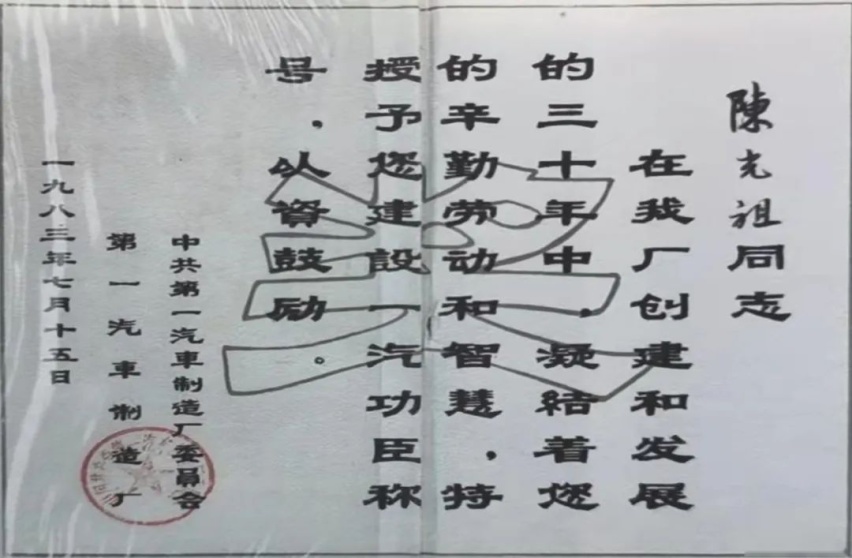 陳光祖同志
在我厂创建和发展
的三十年中，凝結着您
的辛勤劳动和智慧，特
授予您建設一汽功臣称
号，以資鼓励。
中共第一汽車制造厂委員会
第一汽車制造厂
一九八三年七月十五日